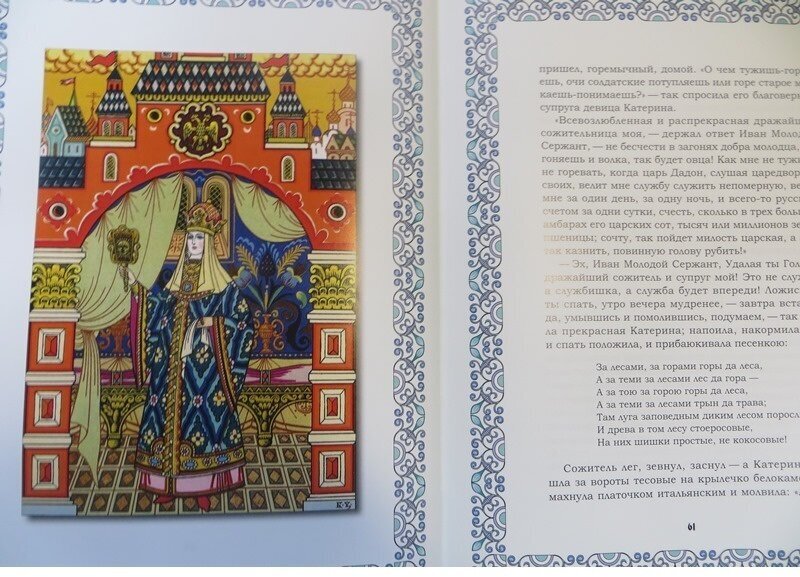 К-К
пришел, горемычный, домой. «О чем тужишь-гор
ешь, очи солдатские потупляешь или горе старое м
каешь-понимаешь?» — так спросила его благовер
супруга девица Катерина.
«Всевозлюбленная и распрекрасная дражай
сожительница моя, — держал ответ Иван Моло
Сержант, — не бесчести в загонях добра молодца,
гоняешь и волка, так будет овца! Как мне не туж
не горевать, когда царь Дадон, слушая царедвор
своих, велит мне службу служить непомерную, ве
мне за один день, за одну ночь, и всего-то русс
счетом за одни сутки, счесть, сколько в трех боль
амбарах его царских сот, тысяч или миллионов зе
пшеницы; сочту, так пойдет милость царская, а
так казнить, повинную голову рубить!»
— Эх, Иван Молодой Сержант, Удалая ты Гол
дражайший сожитель и супруг мой! Это не слу
а службишка, а служба будет впереди! Ложис
ты спать, утро вечера мудренее, — завтра вста
да, умывшись и помолившись, подумаем, — так
ла прекрасная Катерина; напоила, накормила
и спать положила, и прибаюкивала песенкою:
За лесами, за горами горы да леса,
А за теми за лесами лес да гора —
А за тою за горою горы да леса,
А за теми за лесами трын да трава;
Там луга заповедным диким лесом поросл
И древа в том лесу стоеросовые,
На них шишки простые, не кокосовые!
Сожитель лег, зевнул, заснул — а Катерин
шла за вороты тесовые на крылечко белокам
махнула платочком итальянским и молвила:
61